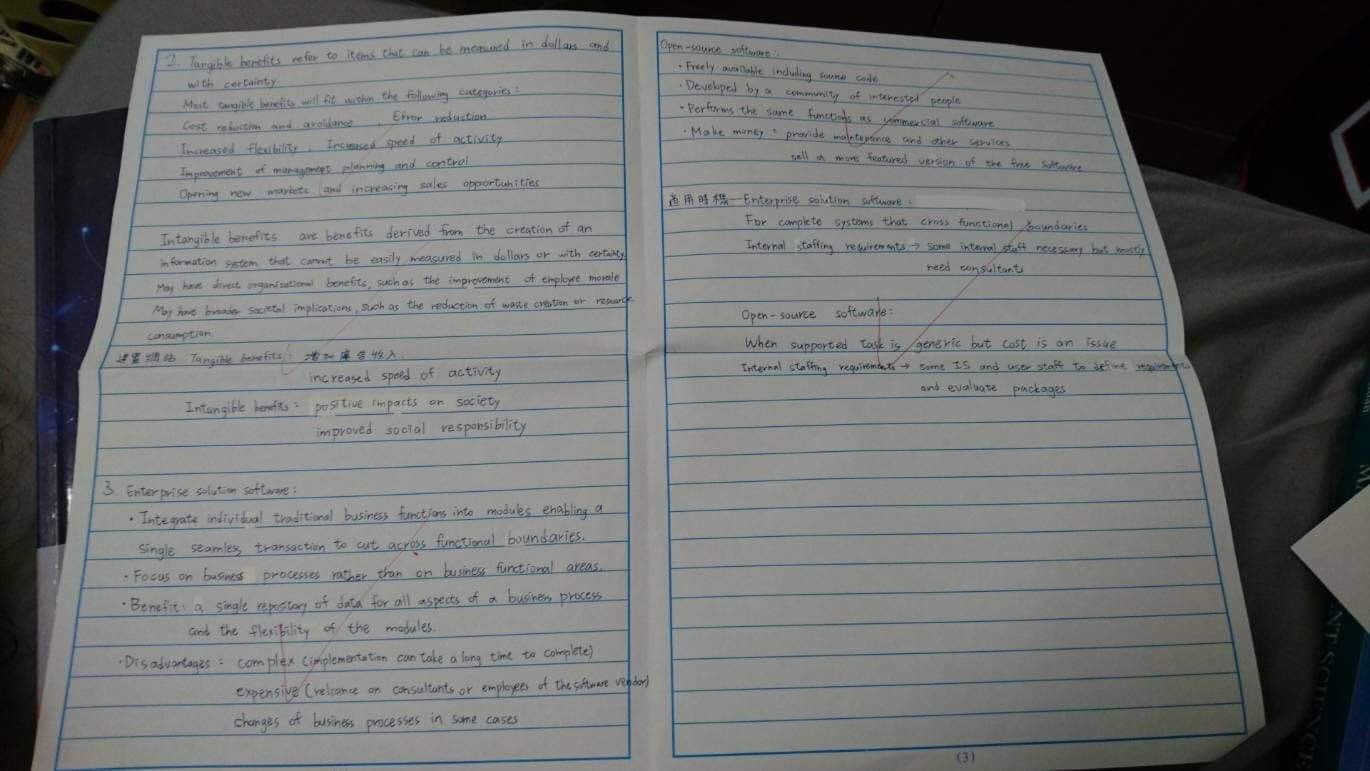 2. Tangible benefits refer to items that can be measured in dollars and
with certainty
Most tangible benefits will fit within the following categories:
Cost reduction and avoidance . Error reduction
Increased flexibility . Increased speed of activity
Improvement of management planning and control
Opening new markets and increasing sales opportunities
Intangible benefits are benefits derived from the creation of an
information system that cannot be easily measured in dollars or with certainty
May have direct organizational benefits, such as the improvement of employee morale
May have broader societal implications, such as the reduction of waste creation or resource
consumption.
建置網站 Tangible benefits: 增加廣告收入
increased speed of activity
Intangible benefits: positive impacts on society
improved social responsibility
3. Enterprise solution software:
• Integrate individual traditional business functions into modules enabling a
single seamless transaction to cut across functional boundaries.
• Focus on business processes rather than on business functional areas.
• Benefit: a single repository of data for all aspects of a business process
and the flexibility of the modules.
• Disadvantages: complex (implementation can take a long time to complete)
expensive (reliance on consultants or employees of the software vendor)
changes of business processes in some cases
Open-source software:
• Freely available including source code
• Developed by a community of interested people
• Performs the same functions as commercial software
• Make money: provide maintenance and other services
sell a more featured version of the free software
適用時機─Enterprise solution software:
For complete systems that cross functional boundaries
Internal staffing requirements → some internal staff necessary but mostly
need consultants
Open-source software:
When supported task is generic but cost is an issue
Internal staffing requirements → some IS and user staff to define requirements
and evaluate packages
(3)